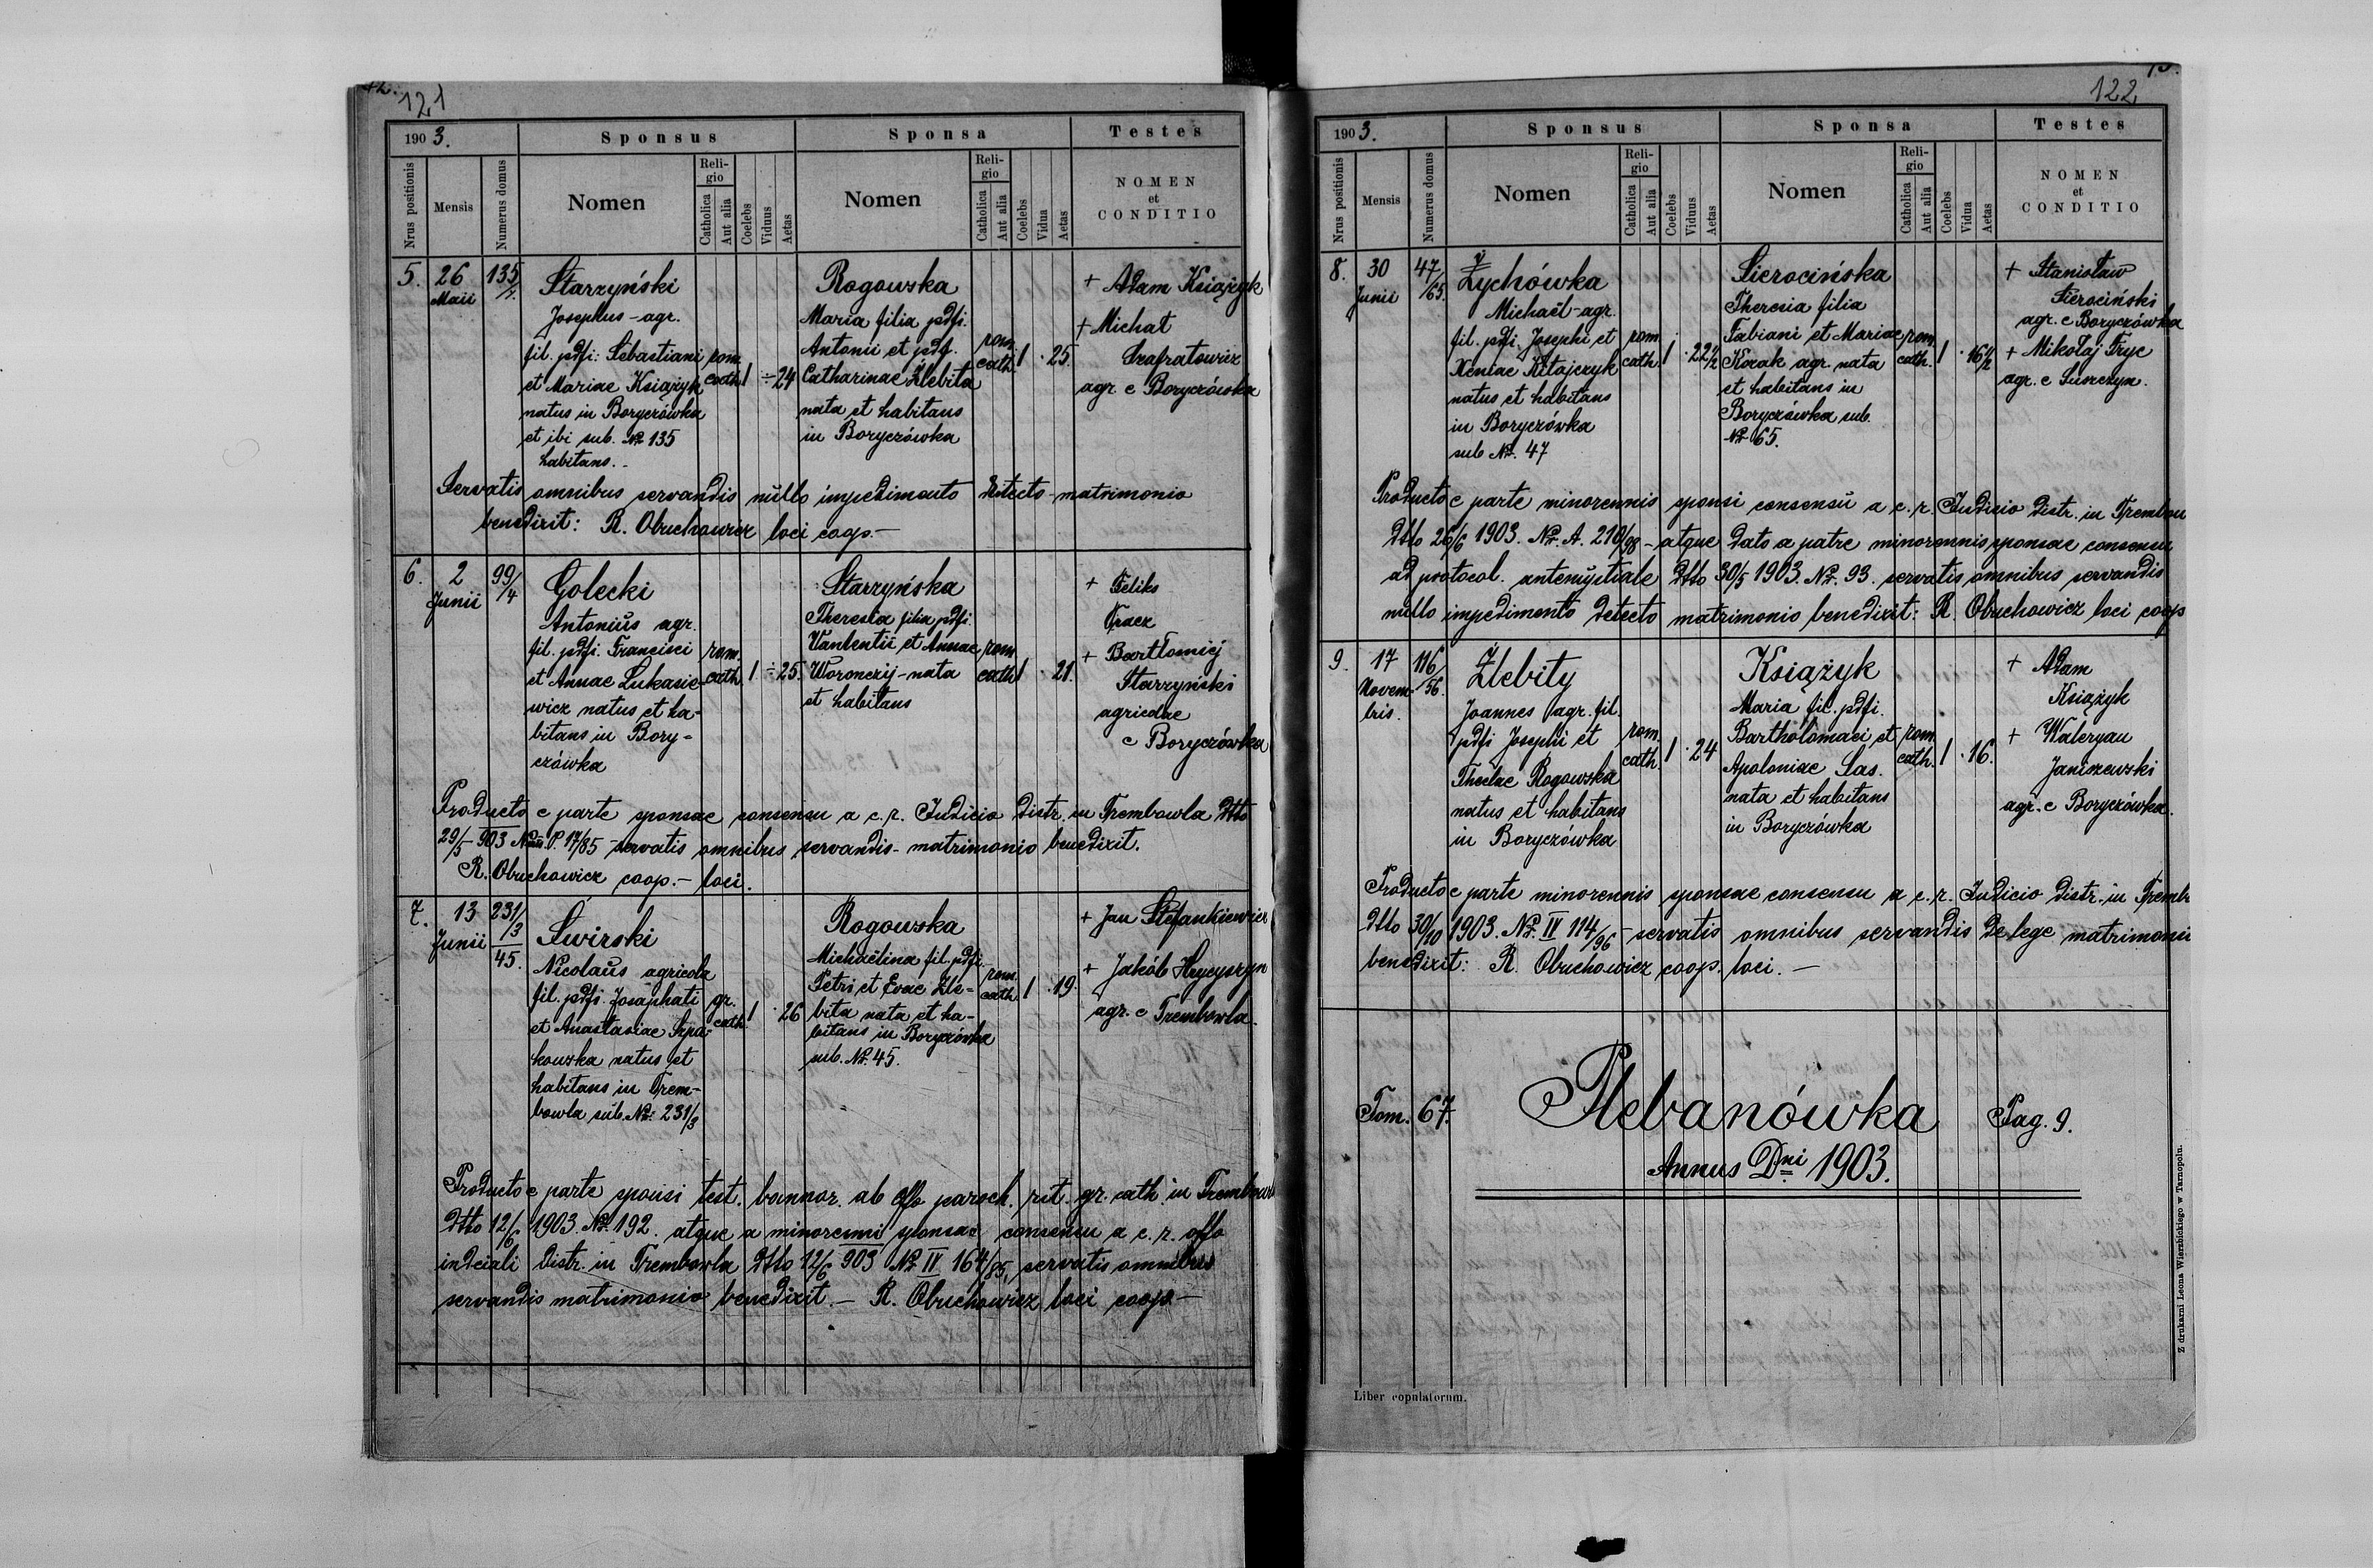 121
190 3.
Sponsus
Sponsa
Testes
Nrus positionis
Mensis
Numerus domus
Nomen
Religio
Catholica
Aut alia
Coelebs
Viduus
Aetas
Nomen
Religio
Catholica
Aut alia
Coelebs
Vidua
Aetas
NOMEN
et
CONDITIO
5.
26
Maii
135/
Starzyński
Josephus - agr.
fil. pdfi: Sebastiani
et Mariae Książyk
natus in Boryczówka
et ibi sub. № 135
habitans.
rom.
cath.
1
24
Rogowska
Maria filia pdfi.
Antonii et pdf.
Catharinae Zlebita
nata et habitans
in Boryczówka
rom.
cath.
1
25.
+ Adam Książyk
+ Michał
Szafratowicz
agr. e Boryczówka
Servatis omnibus servandis nullo impedimento detecto matrimonio
benedixit: R. Obuchowicz loci coop. -
6.
2
Junii
99/4
Golecki
Antonius agr.
fil. pdfi. Francisci
et Annae Lukasie-
wicz natus et ha-
bitans in Bory-
czówka
rom.
cath.
1
25.
Starzyńska
Theresia filia pdfi.
et Annae
Woronczij - nata
et habitans
rom.
cath.
1
21.
+ Feliks
Tracz
+ Bartłomiej
Starzyński
agricolae
e Boryczówka
Producto e parte sponsae consensu a c. r. Iudicio distr. in Trembowla dtto
29/5 903 P. 17/85 servatis omnibus servandis - matrimonio benedixit.
R. Obuchowicz coop. - loci.
7.
13
Junii
231/
1/3
45.
Swirski
Nicolaus agricola
fil. pdfi. Josaphati
et Anastasiae Szpa-
kowska natus et
habitans in Trem-
bowla sub. №: 231/3
gr.
cath.
1
26
Rogowska
Michaelina fil. pdfi.
Petri et Evae Zle-
bita nata et ha-
bitans in Boryczówka
sub. №. 45.
rom.
cath.
1
19.
+ Jan Stefankiewicz
+ Jakób Hrycyszyn
agr. e Trembowla.
Producto e parte sponsi test. bannor. ab offo paroch. rit. gr. cath. in
Dtto 12/6 1903. №. 192. atque a minorenni sponsae consensu a c. r. offo
distr. in Trembowla Dtto 12/6 903 № IV 164/85, servatis omnibus
servandis matrimonio benedixit. - R. Obuchowicz loci coop. -
122
190 3.
Sponsus
Sponsa
Testes
Nrus positionis
Mensis
Numerus domus
Nomen
Religio
Catholica
Aut alia
Coelebs
Viduus
Aetas
Nomen
Religio
Catholica
Aut alia
Coelebs
Vidua
Aetas
NOMEN
et
CONDITIO
8.
30
Junii
47/
/65.
Zychówka
Michaël - agr.
fil. pdfi. Josephi et
Xeniae Kitajczyk
natus et habitans
in Boryczówka
sub №. 47
rom.
cath.
1
22½
Sierocińska
Theresia filia
Fabiani et Mariae
Kozak agr. nata
et habitans in
Boryczówka sub.
№ 65.
rom.
cath.
1
16½
+ Stanisław
Sierociński
agr. e Boryczówka
+ Mikołaj Fryc
agr. e Suszczyn.
Producto e parte minorennis sponsi consensu a c. r. Iudicio distr. in
Dtto 26/6 1903. №. A. 210/98 - atque dato a patre minorennis sponsae consensu
ad protocol. antenuptiale Dtto 30/5 1903. №. 93. servatis omnibus servandis
nullo impedimento detecto matrimonio benedixit: R. Obuchowicz loci coop
9.
17
Novem-
bris.
116/
56.
Zlebity
Joannes agr. fil.
pdfi Josephi et
Theclae Rogowska
natus et habitans
in Boryczówka
rom.
cath.
1
24
Książyk
Maria fil. pdfi.
Bartholomaei et
Apoloniae Sas.
nata et habitans
in Boryczówka
rom.
cath.
1
16.
+ Adam
Książyk
+ Waleryan
Janiszewski
agr. e Boryczówka.
Producto e parte minorennis sponsae consensu a c. r. Iudicio distr. in
Dtto 30/10 1903. №. IV 114/96 - servatis omnibus servandis de lege matrimonio
benedixit: R. Obuchowicz coop. loci. -
Tom. 67.
Plebanówka
Pag. 9.
Annus Dni 1903.
Liber copulatorum.
Z drukarni Leona Wierzbickiego w Tarnopolu.